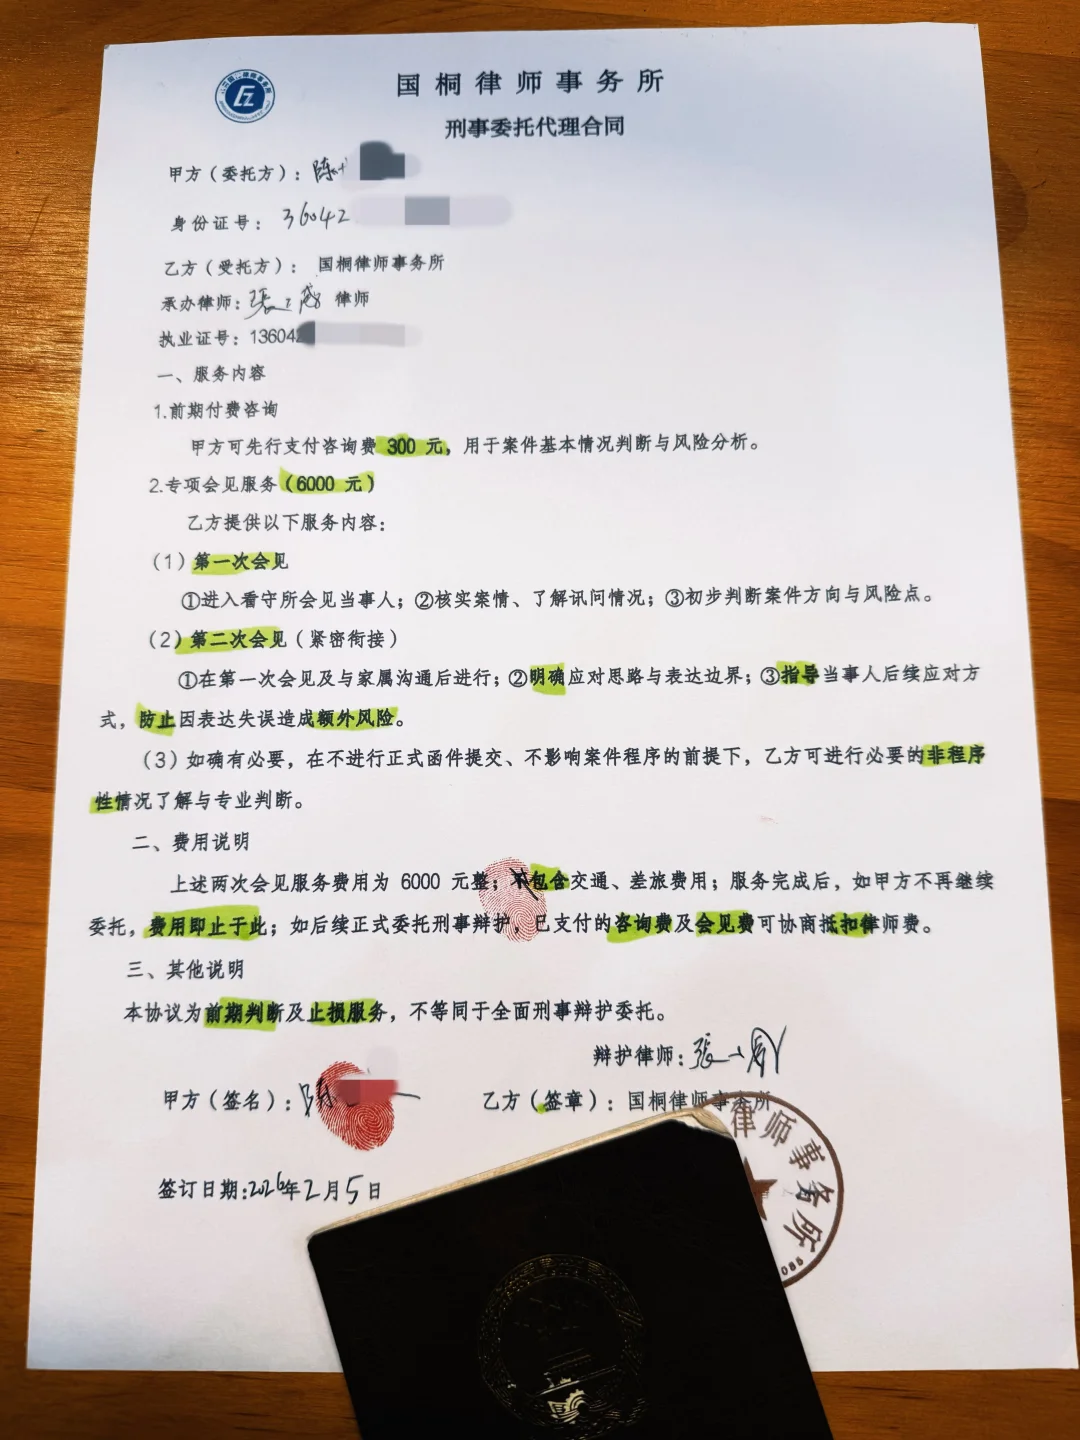 国桐律师事务所
刑事委托代理合同
甲方（委托方）：陈
身份证号：36042
乙方（受托方）：国桐律师事务所
承办律师：張 律师
执业证号：13604
一、服务内容
1.前期付费咨询
甲方可先行支付咨询费 300 元，用于案件基本情况判断与风险分析。
2.专项会见服务（6000 元）
乙方提供以下服务内容：
（1）第一次会见
①进入看守所会见当事人；②核实案情、了解讯问情况；③初步判断案件方向与风险点。
（2）第二次会见（紧密衔接）
①在第一次会见及与家属沟通后进行；②明确应对思路与表达边界；③指导当事人后续应对方
式，防止因表达失误造成额外风险。
（3）如确有必要，在不进行正式函件提交、不影响案件程序的前提下，乙方可进行必要的非程序
性情况了解与专业判断。
二、费用说明
上述两次会见服务费用为 6000 元整；包含交通、差旅费用；服务完成后，如甲方不再继续
委托，费用即止于此；如后续正式委托刑事辩护，已支付的咨询费及会见费可协商抵扣律师费。
三、其他说明
本协议为前期判断及止损服务，不等同于全面刑事辩护委托。
辩护律师：張
甲方（签名）：陈
乙方（签章）：国桐律师事务所
律师事务所
085
签订日期：2026年2月5日